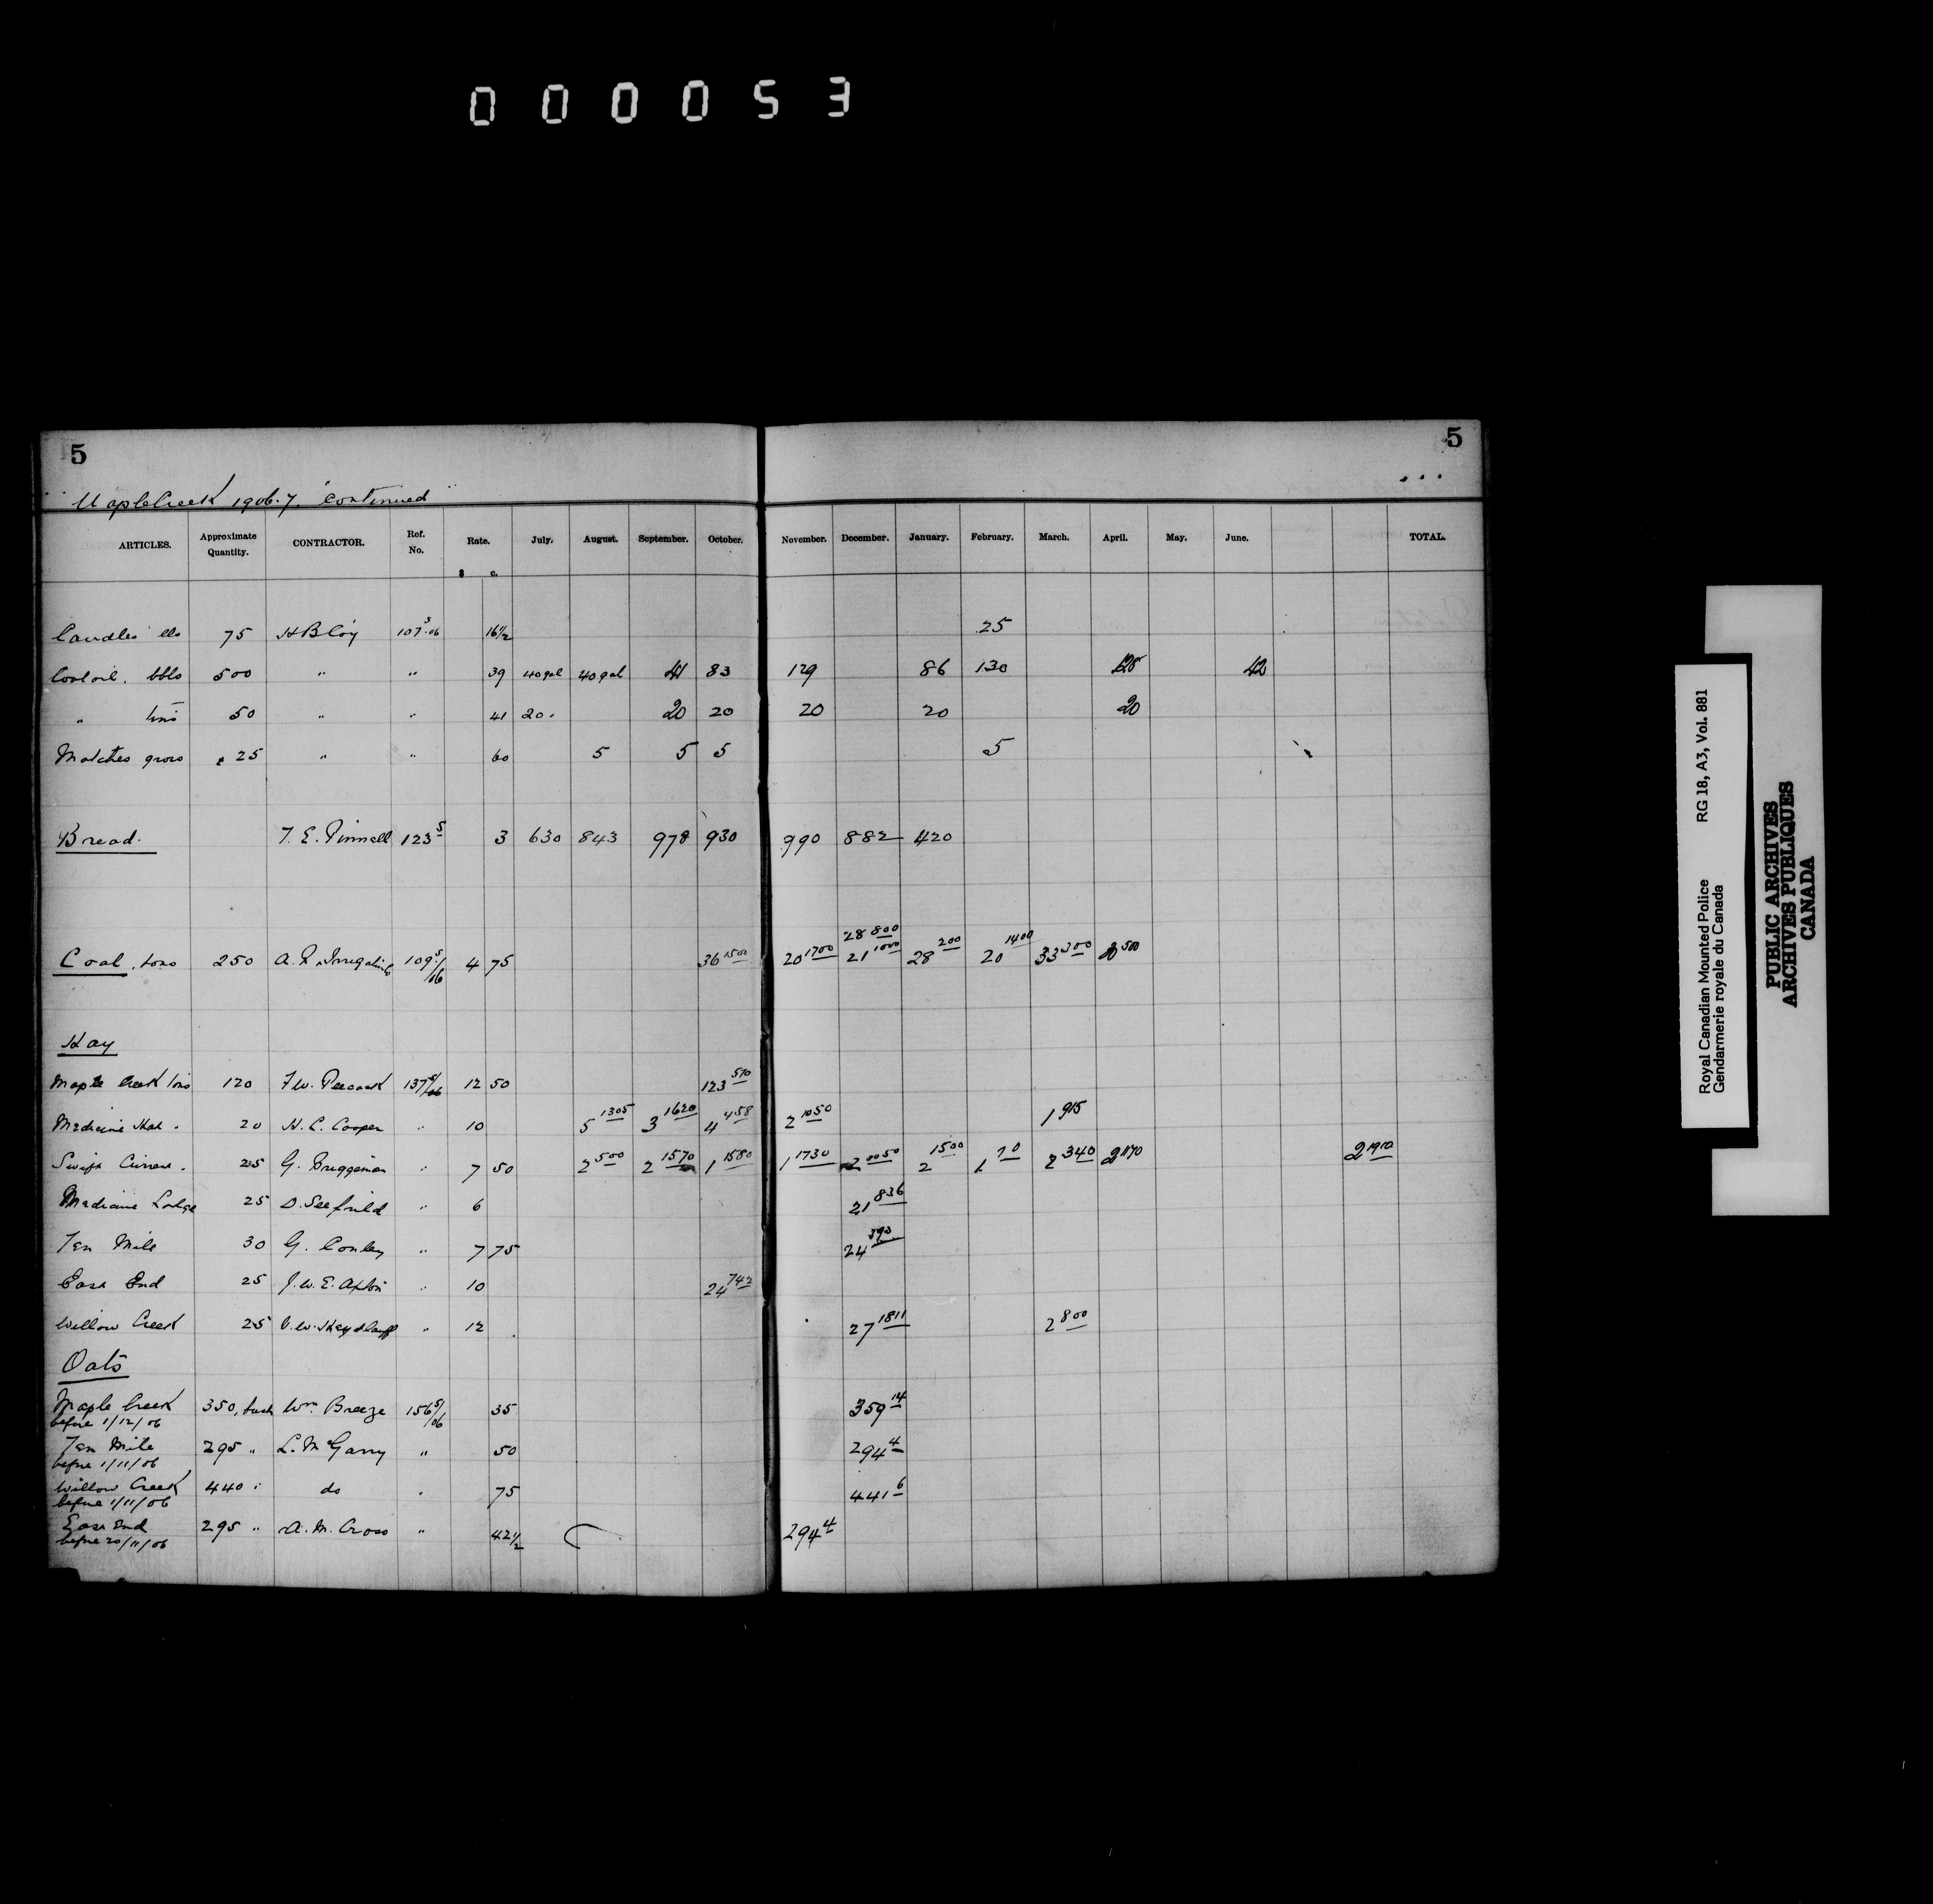 000053
5 5
Maple Creek 1906.7. continued
ARTICLES. Approximate Quantity. CONTRACTOR. Ref. No. Rate. July. August. September. October. November. December. January. February. March. April. May. June. TOTAL.
$ c.
Candles lbs 75 H B 107 5 06 16 1/2 25
Coal oil. bbls 500 " " 39 40 gal 40 gal 41 83 129 86 130 125 42
" tins 50 " " 41 20. 20 20 20 20 20
Matches gross 25 " " 60 5 5 5 5
Bread. T. E. Pinnell 123 5 3 630 843 978 930 990 882 420
28 800
Coal, tons 250 A. R. & Irrigation Co 109 5/06 4 75 36 1500 20 1700 21 1000 28 200 20 1400 33 300 500
Hay
Maple Creek tons 120 F. W. Peacock 137 5/06 12 50 123 570
Medicine Hat. 20 H. C. Cooper " 10 5 1305 3 1620 4 458 2 1050 1 915
Swift Current. 25 G. Bruggeman " 7 50 2 500 2 1570 1 1580 1 1730 2 2 1500 1 70 2 340 2 1170 2 1910
Medicine Lodge 25 D. Seefeild " 6 21 836
Ten Mile 30 G. Conley " 7 75 24 590
East End 25 J. W. E. Axton " 10 24 742
Willow Creek 25 " 12 27 1811 2 800
Oats
Maple Creek 350, bush Wm. Breeze 156 5/06 35 359 14
before 1/12/06
Ten Mile 295 " L. McGarry " 50 294 4
before 1/11/06
Willow Creek 440 " do " 75 441 6
before 1/11/06
East End 295 " A. M. Cross " 42 1/2 294 4
before 20/11/06
Royal Canadian Mounted Police RG 18, A3, Vol. 881
Gendarmerie royale du Canada
PUBLIC ARCHIVES
ARCHIVES PUBLIQUES
CANADA